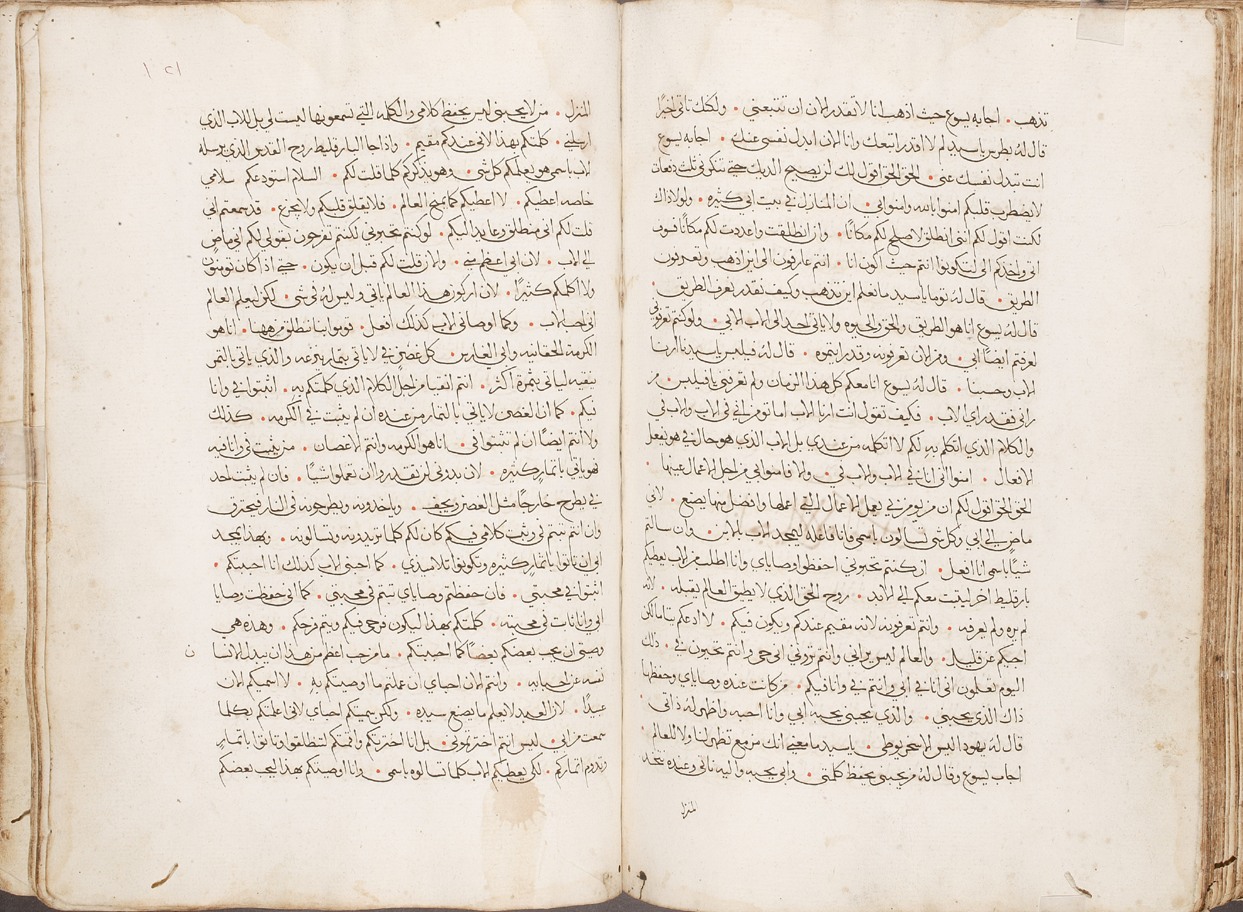 تذهب . اجابه يسوع حيث اذهب انا لا تقدر الان ان تتبعني . ولكنك تاتي اخيرًا
قال له بطرس يا سيد لم لا اقدر اتبعك وانا الان ابدل نفسي عنك . اجابه يسوع
انت تبدل نفسك عني . الحق الحق اقول لك لن يصيح الديك حتى تنكرني ثلث دفعات
لا يضطرب قلبكم امنوا بالله وامنوا بي . ان المنازل في بيت ابي كثيره . ولولا ذاك
لكنت اقول لكم انني انطلق لاصلح لكم مكانًا . وان انطلقت واعددت لكم مكانًا فسوف
اتي واخدكم الي لتكونوا انتم حيث اكون انا . انتم عارفون الى اين اذهب وتعرفون
الطريق . قال له توما يا سيد ما نعلم اين تذهب وكيف نقدر نعرف الطريق .
قال له يسوع انا هو الطريق والحق والحيوه ولا ياتي احد الى الاب الا بي . ولو كنتم تعرفوني
لعرفتم ايضًا ابي . ومن الان تعرفونه وقد رايتموه . قال له فيلبس يا سيدنا ارنا
الاب وحسبنا . قال له يسوع انا معكم كل هذا الزمان ولم تعرفني يا فيلبس . من
راني فقد راى الاب . فكيف تقول انت ارنا الاب اما تومن اني في الاب والاب في
والكلام الذي اتكلم به لكم لا اتكلمه من عندي بل الاب الذي هو حال في هو يفعل
الافعال . امنوا اني انا في الاب والاب في . والا فامنوا بي من اجل الاعمال عينها .
الحق الحق اقول لكم ان من يومن بي يعمل الاعمال التي اعملها وافضل منها يصنع . لاني
ماض الى ابي وكل شي تسالون باسمي فانا فاعله ليمجد الاب بالابن . وان سالتم
شيًا باسمي انا افعل . ان كنتم تحبوني احفظوا وصاياي وانا اطلب من الاب يعطيكم
بارقليط اخر ليثبت معكم الى الابد . روح الحق الذي لا يطيق العالم يقبله . لانه
لم يره ولم يعرفه . وانتم تعرفونه لانه مقيم عندكم ويكون فيكم . لا ادعكم يتاما لكن
اجيكم عن قليل . والعالم ليس يراني وانتم تروني اني حي وانتم تحيون في . ذلك
اليوم تعلمون اني انا في ابي وانتم في وانا فيكم . من كانت عنده وصاياي وحفظها
ذاك الذي يحبني . والذي يحبني يحبه ابي وانا احبه واظهر له ذاتي .
قال له يهودا ليس الاسخريوطي . يا سيد ما معنى انك مزمع تظهر لنا ولا للعالم .
اجاب يسوع وقال له من يحبني يحفظ كلمتي . وابي يحبه واليه ناتي وعنده نتخد
المنزل
١٢١
المنزل . من لا يحبني ليس يحفظ كلامي والكلمه التي تسمعونها ليست لي بل للاب الذي
ارسلني . كلمتكم بهذا لاني عندكم مقيم . واذا جا البارقليط روح القدس الذي يرسله
الاب باسمي هو يعلمكم كل شي . وهو يذكركم كلما قلت لكم . السلام استودعكم سلامي
خاصه اعطيكم . لا اعطيكم كما يمنح العالم . فلا يقلق قلبكم ولا يجزع . قد سمعتم اني
قلت لكم اني منطلق وعايد اليكم . لو كنتم تحبوني لكنتم تفرحون بقولي لكم اني ماض
الى الاب . لان ابي اعظم مني . والان قلت لكم قبل ان يكون . حتى اذا كان تومنون
ولا اكلمكم كثيرًا . لان اركون هذا العالم ياتي وليس له في شي . لكن ليعلم العالم
اني احب الاب . وكما اوصاني الاب كذلك افعل . قوموا بنا ننطلق من ههنا . انا هو
الكرمة الحقانيه وابي الغارس . كل غصن في لا ياتي بثمار ينزعه والذي ياتي بالثمر
ينقيه لياتي بثمرة اكثر . انتم انقيا من اجل الكلام الذي كلمتكم به . اثبتوا في وانا
فيكم . كما ان الغصن لا ياتي بالثمار من عنده ان لم يثبت في الكرمه . كذلك
ولا انتم ايضًا ان لم تثبتوا في . انا هو الكرمه وانتم الاغصان . من يثبت في وانا فيه
فهو ياتي باثمار كثيره . لان بدوني لن تقدروا ان تعملوا شيًا . فان لم يثبت احد
في يطرح خارجًا مثل الغصن ويجف . وياخدونه ويطرحونه في النار فيحترق
وان انتم ثبتم في وثبت كلامي فيكم كان لكم كلما تريدونه وتسالونه . وبهذا يمجد
ابي ان تاتوا باثمار كثيره وتكونوا تلاميذي . كما احبني الاب كذلك انا احببتكم .
اثبتوا في محبتي . فان حفظتم وصاياي ثبتم في محبتي . كما اني حفظت وصايا
ابي وانا ثابت في محبته . كلمتكم بهذا ليكون فرحي فيكم ويتم فرحكم . وهذه هي
وصيتي ان يحب بعضكم بعضًا كما احببتكم . ما من حب اعظم من هذا ان يبدل الانسا
ن
نفسه عن احبايه . وانتم الان احباي ان عملتم ما اوصيتكم به . لا اسميكم الان
عبيدًا . لان العبد لا يعلم ما يصنع سيده . ولكن سميتكم احباي لاني اعلمتكم بكلما
سمعت من ابي . ليس انتم اخترتموني . بل انا اخترتكم واقمتكم لتنطلقوا وتاتوا باثمار
وتدوم اثماركم . لكي يعطيكم الاب كلما تسالوه باسمي . وانا اوصيتكم بهذا ليحب بعضكم